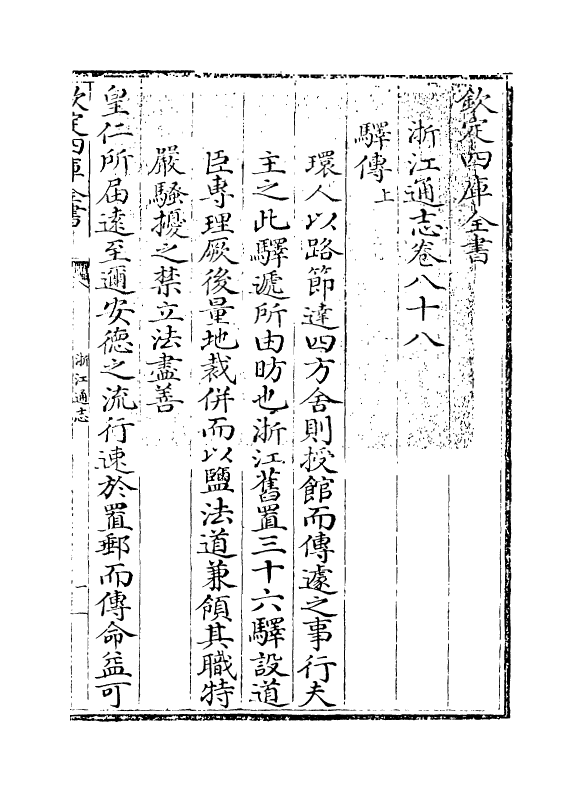 欽定四庫全書
浙江通志卷八十八
驛傳上
環人以路節達四方舍則授館而傳遽之事行夫
主之此驛遞所由昉也浙江舊置三十六驛設道
臣專理厥後量地裁併而以鹽法道兼領其職特
嚴騷擾之禁立法盡善
皇仁所屆逺至邇安德之流行速於置郵而傳命益可
欽定四庫全書
浙江通志
一